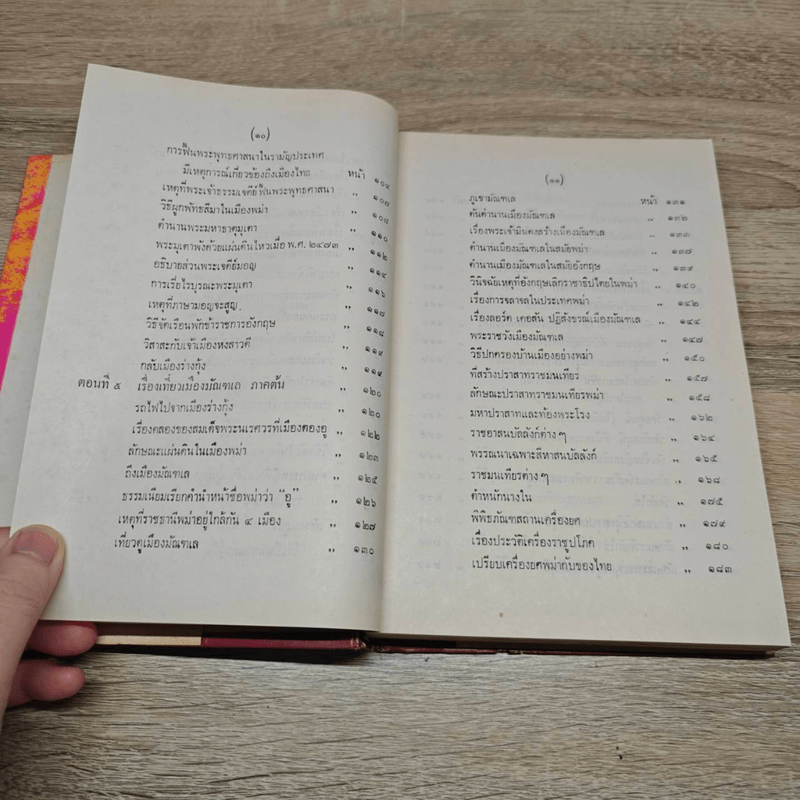 (๑๐)
การฟื้นพระพุทธศาสนาในรามัญประเทศ
มีเหตุการณ์เกี่ยวข้องถึงเมืองไทย หน้า ๑๐๔
เหตุที่พระเจ้าธรรมเจดีย์ฟื้นพระพุทธศาสนา ,, ๑๐๗
วิธีผูกพัทธสีมาในเมืองพม่า ,, ๑๐๘
ตำนานพระมหาธาตุมุเตา ,, ๑๑๐
พระมุเตาพังด้วยแผ่นดินไหวเมื่อ พ.ศ. ๒๔๗๓ ,, ๑๑๒
อธิบายส่วนพระเจดีย์มอญ ,, ๑๑๔
การเรี่ยไรบูรณะพระมุเตา ,, ๑๑๖
เหตุที่ภาษามอญจะสูญ ,, ๑๑๗
วิธีจัดเรือนพักข้าราชการอังกฤษ ,, ๑๑๘
วิสาสะกับเจ้าเมืองหงสาวดี ,, ๑๑๙
กลับเมืองร่างกุ้ง ,, ๑๑๙
ตอนที่ ๕ เรื่องเที่ยวเมืองมัณฑเล ภาคต้น ,, ๑๒๐
รถไฟไปจากเมืองร่างกุ้ง ,, ๑๒๐
เรื่องคลองของสมเด็จพระนเรศวรที่เมืองตองอู ,, ๑๒๒
ลักษณะแผ่นดินในเมืองพม่า ,, ๑๒๓
ถึงเมืองมัณฑเล ,, ๑๒๕
ธรรมเนียมเรียกคำนำหน้าชื่อพม่าว่า "อู" ,, ๑๒๖
เหตุที่ราชธานีพม่าอยู่ใกล้กัน ๔ เมือง ,, ๑๒๗
เที่ยวดูเมืองมัณฑเล ,, ๑๓๐
(๑๑)
ภูเขามัณฑเล หน้า ๑๓๑
ต้นตำนานเมืองมัณฑเล ,, ๑๓๒
เรื่องพระเจ้ามินดงสร้างเมืองมัณฑเล ,, ๑๓๓
ตำนานเมืองมัณฑเลในสมัยพม่า ,, ๑๓๗
ตำนานเมืองมัณฑเลในสมัยอังกฤษ ,, ๑๓๙
วินิจฉัยเหตุที่อังกฤษเลิกราชาธิปไตยในพม่า ,, ๑๔๐
เรื่องการจลาจลในประเทศพม่า ,, ๑๔๒
เรื่องลอร์ด เคอสัน ปฏิสังขรณ์เมืองมัณฑเล ,, ๑๔๔
พระราชวังเมืองมัณฑเล ,, ๑๔๗
วิธีปกครองบ้านเมืองอย่างพม่า ,, ๑๕๐
ที่สร้างปราสาทราชมนเทียร ,, ๑๕๗
ลักษณะปราสาทราชมนเทียรพม่า ,, ๑๕๘
มหาปราสาทและท้องพระโรง ,, ๑๖๒
ราชอาสนบัลลังก์ต่าง ๆ ,, ๑๖๔
พรรณนาเฉพาะสีหาสนบัลลังก์ ,, ๑๖๕
ราชมนเทียรต่าง ๆ ,, ๑๖๘
ตำหนักนางใน ,, ๑๗๕
พิพิธภัณฑสถานเครื่องยศ ,, ๑๗๙
เรื่องประวัติเครื่องราชูปโภค ,, ๑๘๐
เปรียบเครื่องยศพม่ากับของไทย ,, ๑๘๓